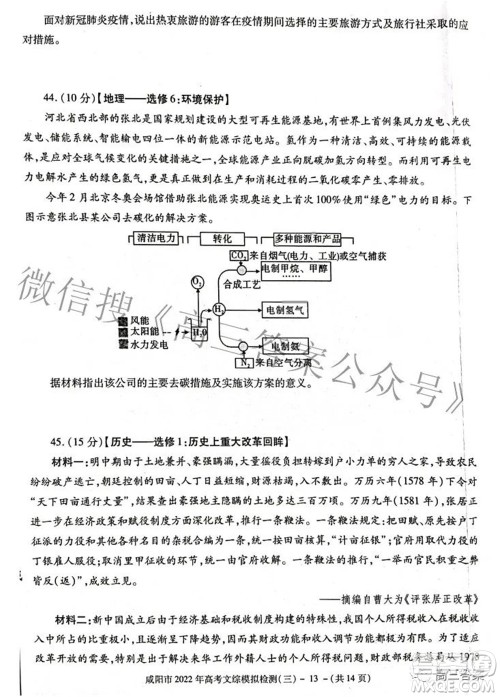 面对新冠肺炎疫情,说出热衷旅游的游客在疫情期间选择的主要旅游方式及旅行社采取的应
对措施。
44.(10分)【地理——选修6:环境保护】
河北省西北部的张北是国家规划建设的大型可再生能源基地,有世界上首例集风力发电、光伏
发电、储能系统、智能输电四位一体的新能源示范电站。氢作为一种清洁、高效、可持续的能源载
体,是应对全球气候变化的关键之一,全球能源产业正向脱碳加氢方向转型。而利用可再生电
力电解水产生的绿色氢气,更是真正做到在生产和消耗过程中的二氧化碳零产生、零排放。
今年2月北京冬奥会场馆借助张北能源实现奥运史上首次100%使用“绿色”电力的目标。下
图示意张北县某公司去碳化的解决方案。
清洁电力 转化 多种能源和产品
CO₂ 来自烟气(电力、工业)或空气捕获
O₂ 电制甲烷、甲醇
合成工艺
H₂ 电制氢气
风能
太阳能 H₂O
水力发电 电制氨
N₂ 来自空气分离
据材料指出该公司的主要去碳措施及实施该方案的意义。
45.(15分)【历史——选修1:历史上重大改革回眸】
材料一:明中期由于土地兼并、豪强瞒漏,大量徭役负担转嫁到户小力单的穷人之家,导致农民
纷纷破产逃亡,豪强地主日益丰殖,财源枯竭,入不敷出。万历六年(1578年)张居正下
令“天下田亩通行丈量”,使得国家控制的田亩大增,财源多达三百万顷。万历九年(1581年),张居正
在经济政策和赋役制度方面深化改革,推行一条鞭法。一条鞭法的主要内容是:把田赋、原先按户丁
征派的力役和其他各种名目的杂税合编为一种,按田亩核算,“计亩征银”;由官府用银代役的办法
丁银雇人服役;取消里甲征收的环节,统一由官府收解。一条鞭法的推行,“一举而官民积重之弊
皆反(返)”,成效显著。
——摘编自曹大为《评张居正改革》
材料二:新中国成立后由于经济基础和税收制度建构的特殊性,我国个人所得税收入在税收收
入中所占的比重小,因而其财政功能和经济功能一直难以体现,后来逐步趋于停滞。改革开放以
后,应改革开放的需要(特别是出于解决来华工作外籍人士的个人所得税问题,财政部税务总局从1978
咸阳市2022年高考文综模拟检测(三)-13-(共14页)
微信搜《高三答案公众号》
高三答案